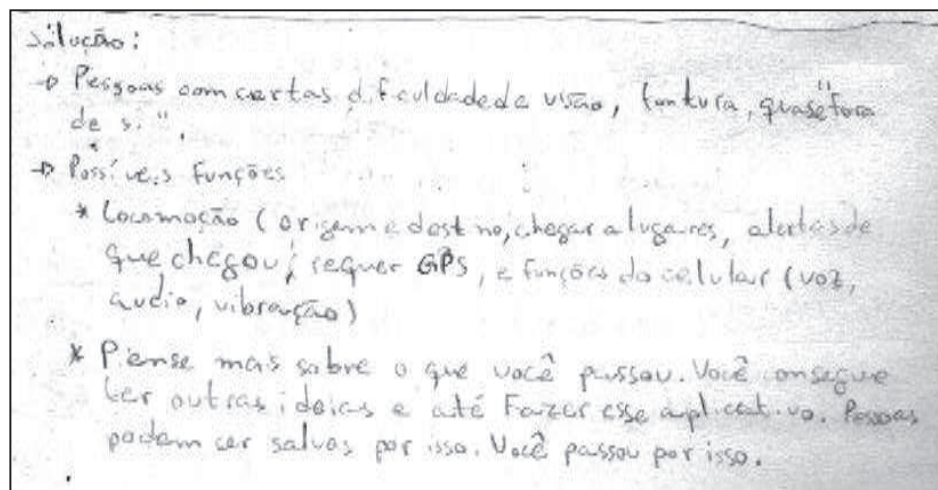 Solução:
→ Pessoas com certas dificuldade de visão, tontura, quase "fora
de si".
→ Possíveis Funções
* Locomoção (origem e destino, chegar a lugares, alertas de
que chegou; requer GPS, e funções do celular (voz,
audio, vibração)
* Piense mais sobre o que você passou. Você consegue
ter outras ideias e até Fazer esse aplicativo. Pessoas
podem ser salvas por isso. Você passou por isso.